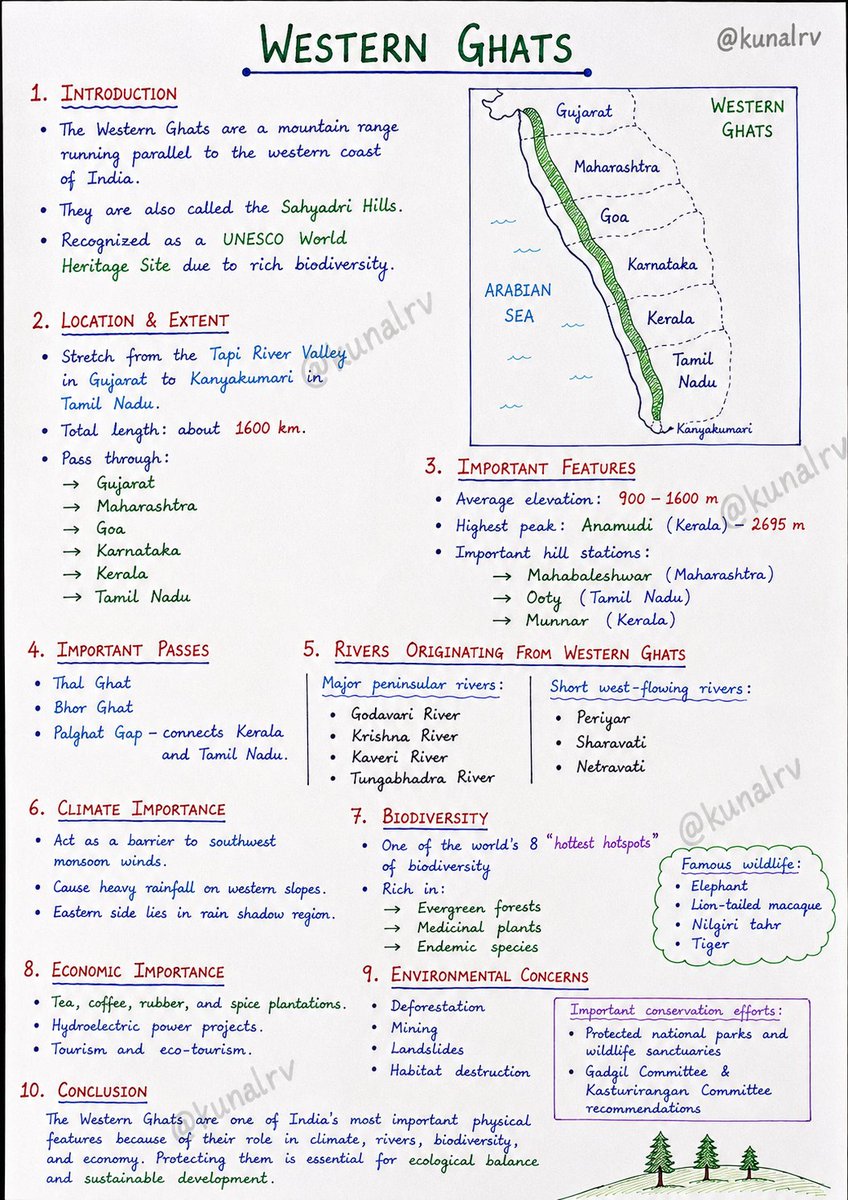 WESTERN GHATS
@kunalrv
1. INTRODUCTION
• The Western Ghats are a mountain range
running parallel to the western coast
of India.
• They are also called the Sahyadri Hills.
• Recognized as a UNESCO World
Heritage Site due to rich biodiversity.
WESTERN
GHATS
Gujarat
Maharashtra
Goa
Karnataka
Kerala
Tamil
Nadu
Kanyakumari
ARABIAN
SEA
2. LOCATION & EXTENT
@kunalrv
• Stretch from the Tapi River Valley
in Gujarat to Kanyakumari in
Tamil Nadu.
• Total length: about 1600 km.
• Pass through:
→ Gujarat
→ Maharashtra
→ Goa
→ Karnataka
→ Kerala
→ Tamil Nadu
3. IMPORTANT FEATURES
@kunalrv
• Average elevation: 900 – 1600 m
• Highest peak: Anamudi (Kerala) – 2695 m
• Important hill stations:
→ Mahabaleshwar (Maharashtra)
→ Ooty (Tamil Nadu)
→ Munnar (Kerala)
4. IMPORTANT PASSES
• Thal Ghat
• Bhor Ghat
• Palghat Gap – connects Kerala
and Tamil Nadu.
5. RIVERS ORIGINATING FROM WESTERN GHATS
Major peninsular rivers:
• Godavari River
• Krishna River
• Kaveri River
• Tungabhadra River
Short west-flowing rivers:
• Periyar
• Sharavati
• Netravati
6. CLIMATE IMPORTANCE
• Act as a barrier to southwest
monsoon winds.
• Cause heavy rainfall on western slopes.
• Eastern side lies in rain shadow region.
7. BIODIVERSITY
@kunalrv
• One of the world's 8 "hottest hotspots"
of biodiversity
• Rich in:
→ Evergreen forests
→ Medicinal plants
→ Endemic species
Famous wildlife:
• Elephant
• Lion-tailed macaque
• Nilgiri tahr
• Tiger
8. ECONOMIC IMPORTANCE
• Tea, coffee, rubber, and spice plantations.
• Hydroelectric power projects.
• Tourism and eco-tourism.
9. ENVIRONMENTAL CONCERNS
• Deforestation
• Mining
• Landslides
• Habitat destruction
Important conservation efforts:
• Protected national parks and
wildlife sanctuaries
• Gadgil Committee &
Kasturirangan Committee
recommendations
10. CONCLUSION
@kunalrv
The Western Ghats are one of India's most important physical
features because of their role in climate, rivers, biodiversity,
and economy. Protecting them is essential for ecological balance
and sustainable development.